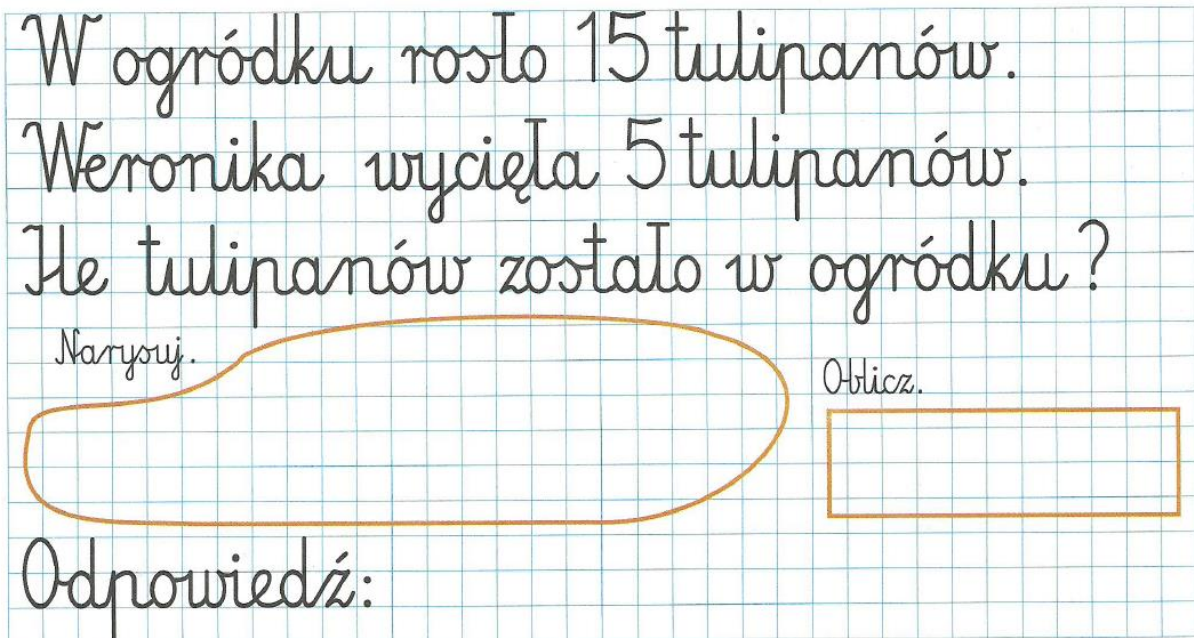 W ogródku rosło 15 tulipanów.
Weronika wycięła 5 tulipanów.
Ile tulipanów zostało w ogródku?
Narysuj.
Oblicz.
Odpowiedź: